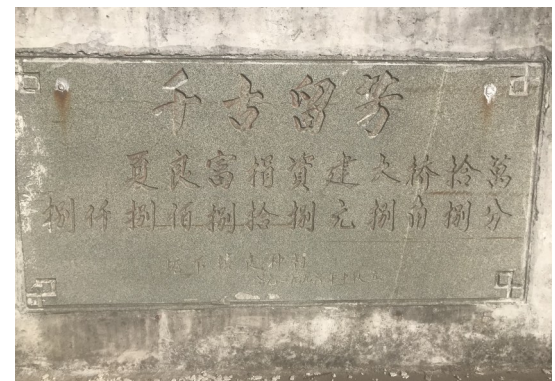 千古留芳
夏良富捐資建天桥拾萬
捌仟捌佰捌拾捌元捌角捌分